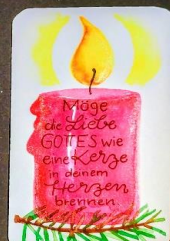 Möge
die Liebe
GOTTES wie
eine Kerze
in deinem
Herzen
brennen.